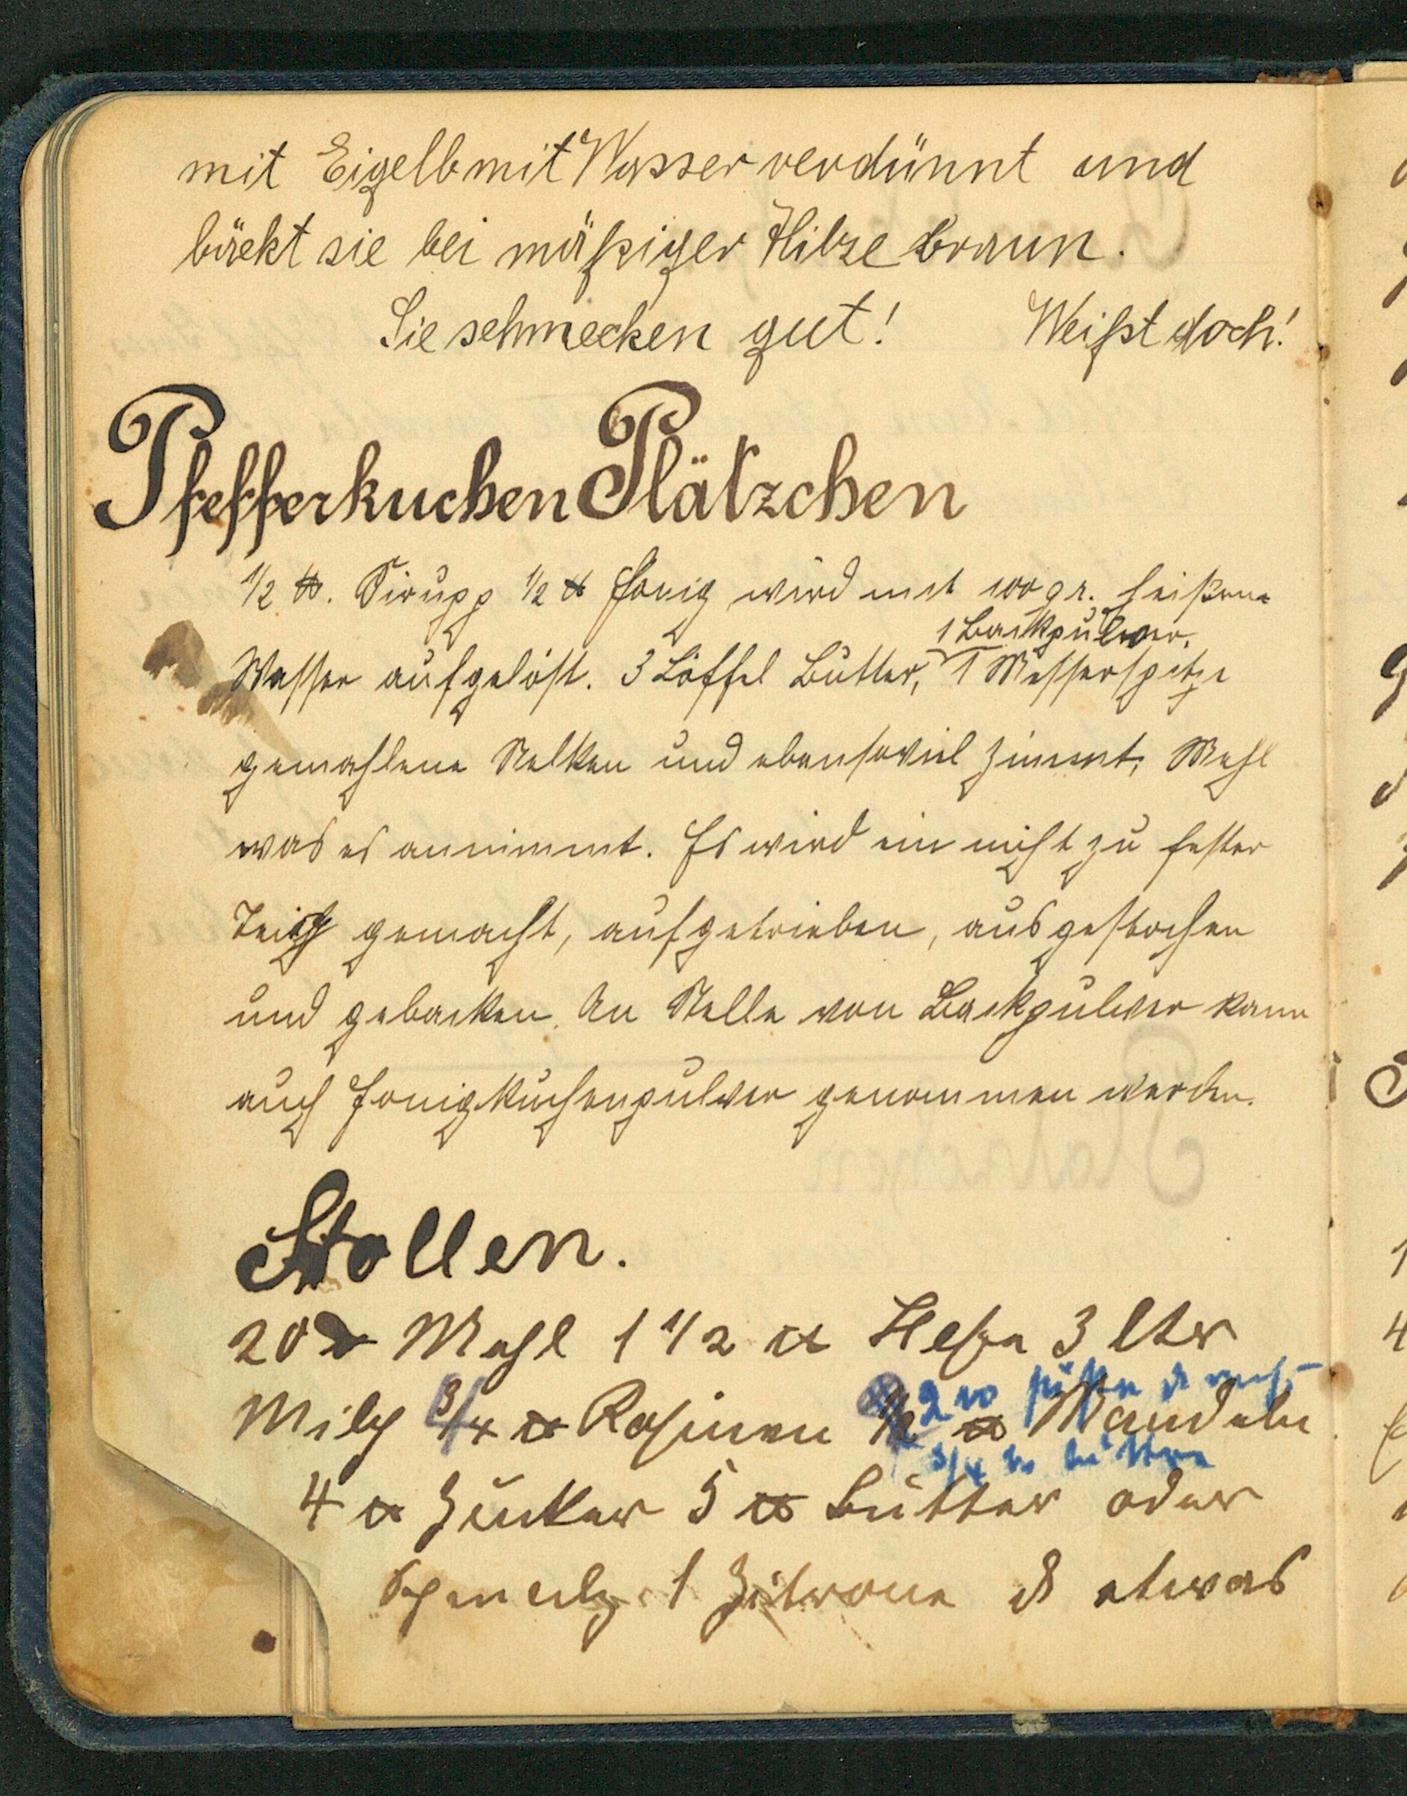 mit Eigelb mit Wasser verdünnt und
bäckt sie bei mäßiger Hitze braun.
Sie schmecken gut! Weißt doch!
Pfefferkuchen Plätzchen
1/2 ℔. Sirupp 1/2 ℔ Honig wird mit 100 gr. heißem
1 Backpulver,
Wasser aufgelöst. 3 Löffel Butter, 1 Messerspitze
gemahlene Nelken und ebensoviel Zimmt, Mehl
was es annimmt. Es wird ein nicht zu fester
Teig gemacht, aufgetrieben, ausgestochen
und gebacken. An Stelle von Backpulver kann
auch Honigkuchenpulver genommen werden.
Stollen.
20 ℔ Mehl 1 1/2 ℔ Hefe 3 ltr
2 ℔ süße &
Milch 3/4 ℔ Rosinen 1/2 ℔ Mandeln
3/4 ℔ bittere
4 ℔ Zucker 5 ℔ Butter oder
Schmelz 1 Zitrone & etwas